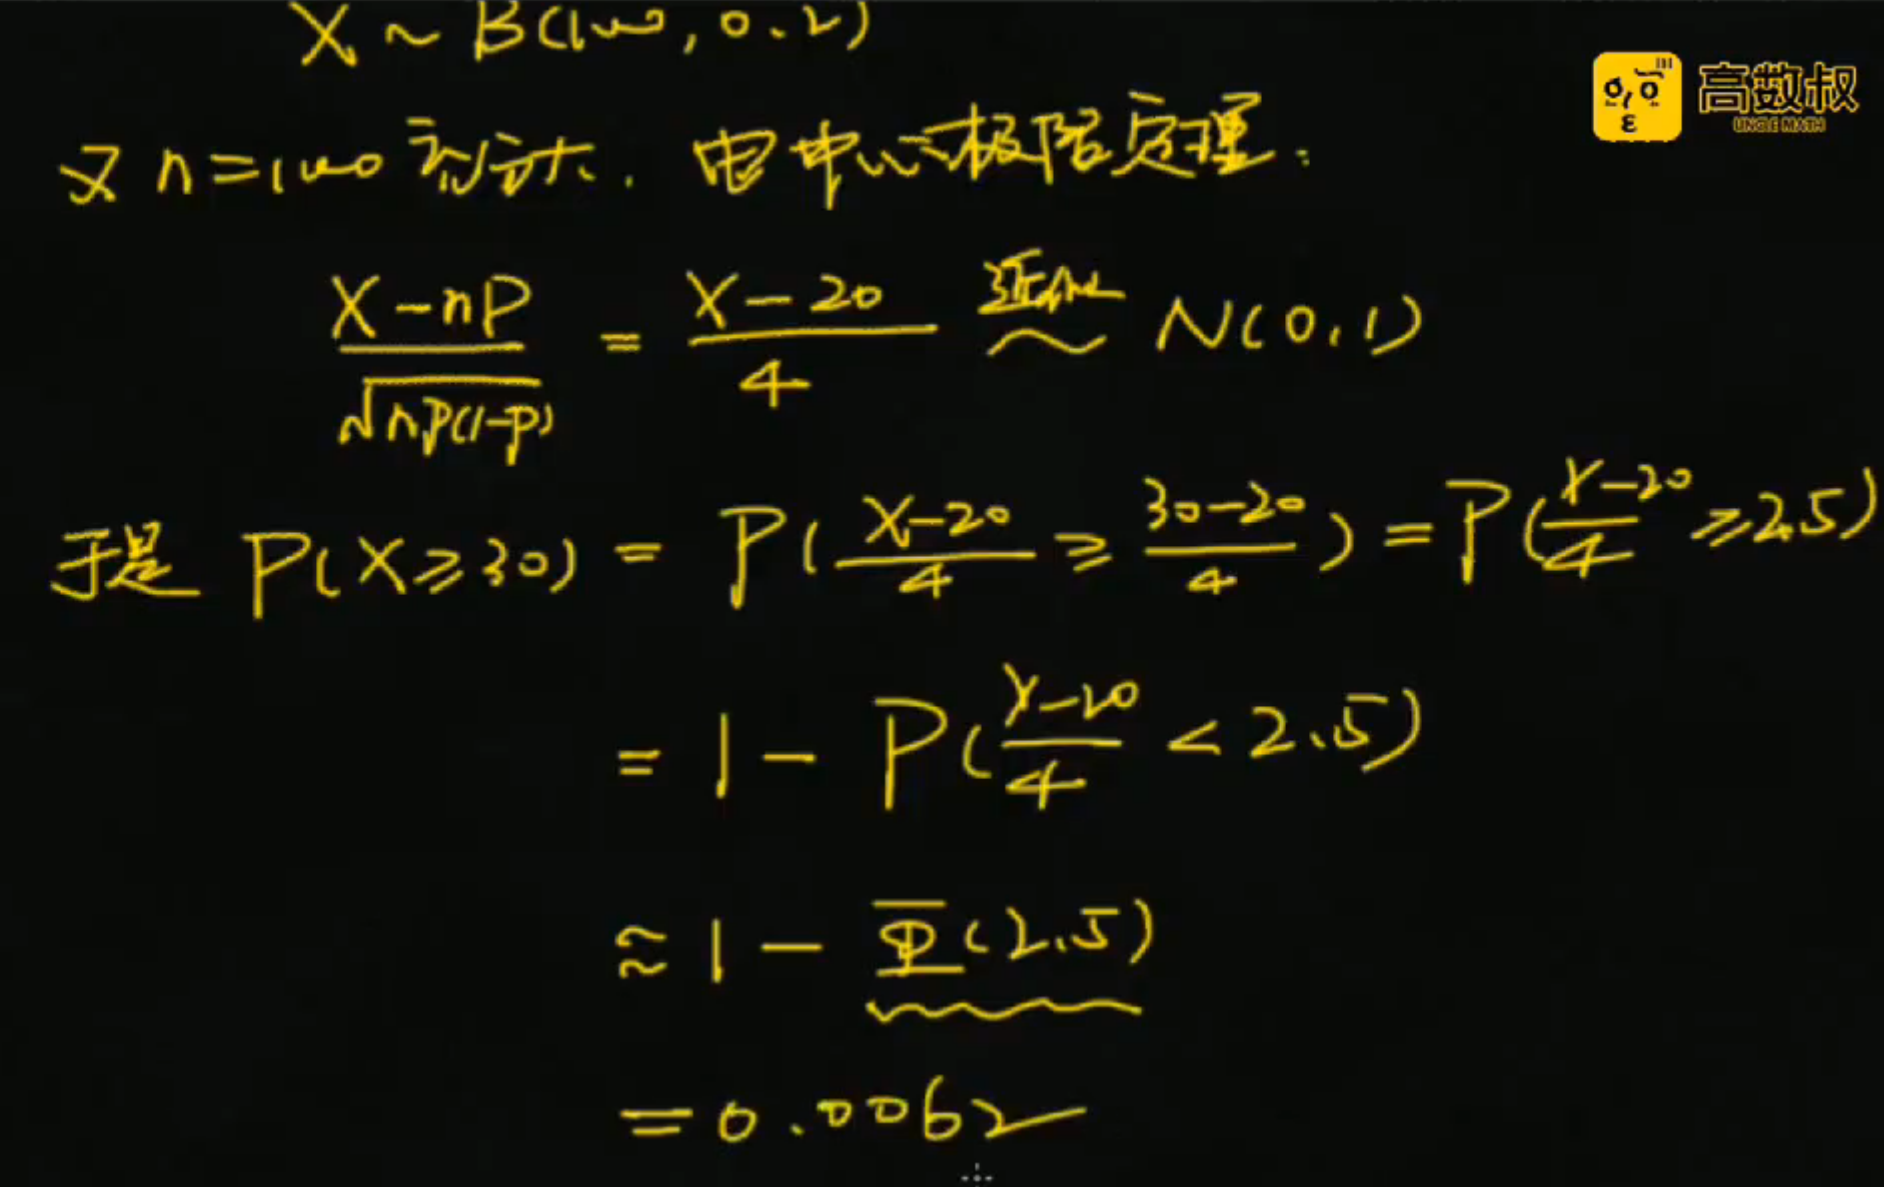 X ~ B(100, 0.2)
高数叔
UNCLE MATH
又 n=100 充分大. 由中心极限定理:
(X-nP)/√(nP(1-P)) = (X-20)/4 近似~ N(0,1)
于是 P(X≥30) = P((X-20)/4 ≥ (30-20)/4) = P((X-20)/4 ≥2.5)
= 1 - P((X-20)/4 < 2.5)
≈ 1 - Φ(2.5)
= 0.0062